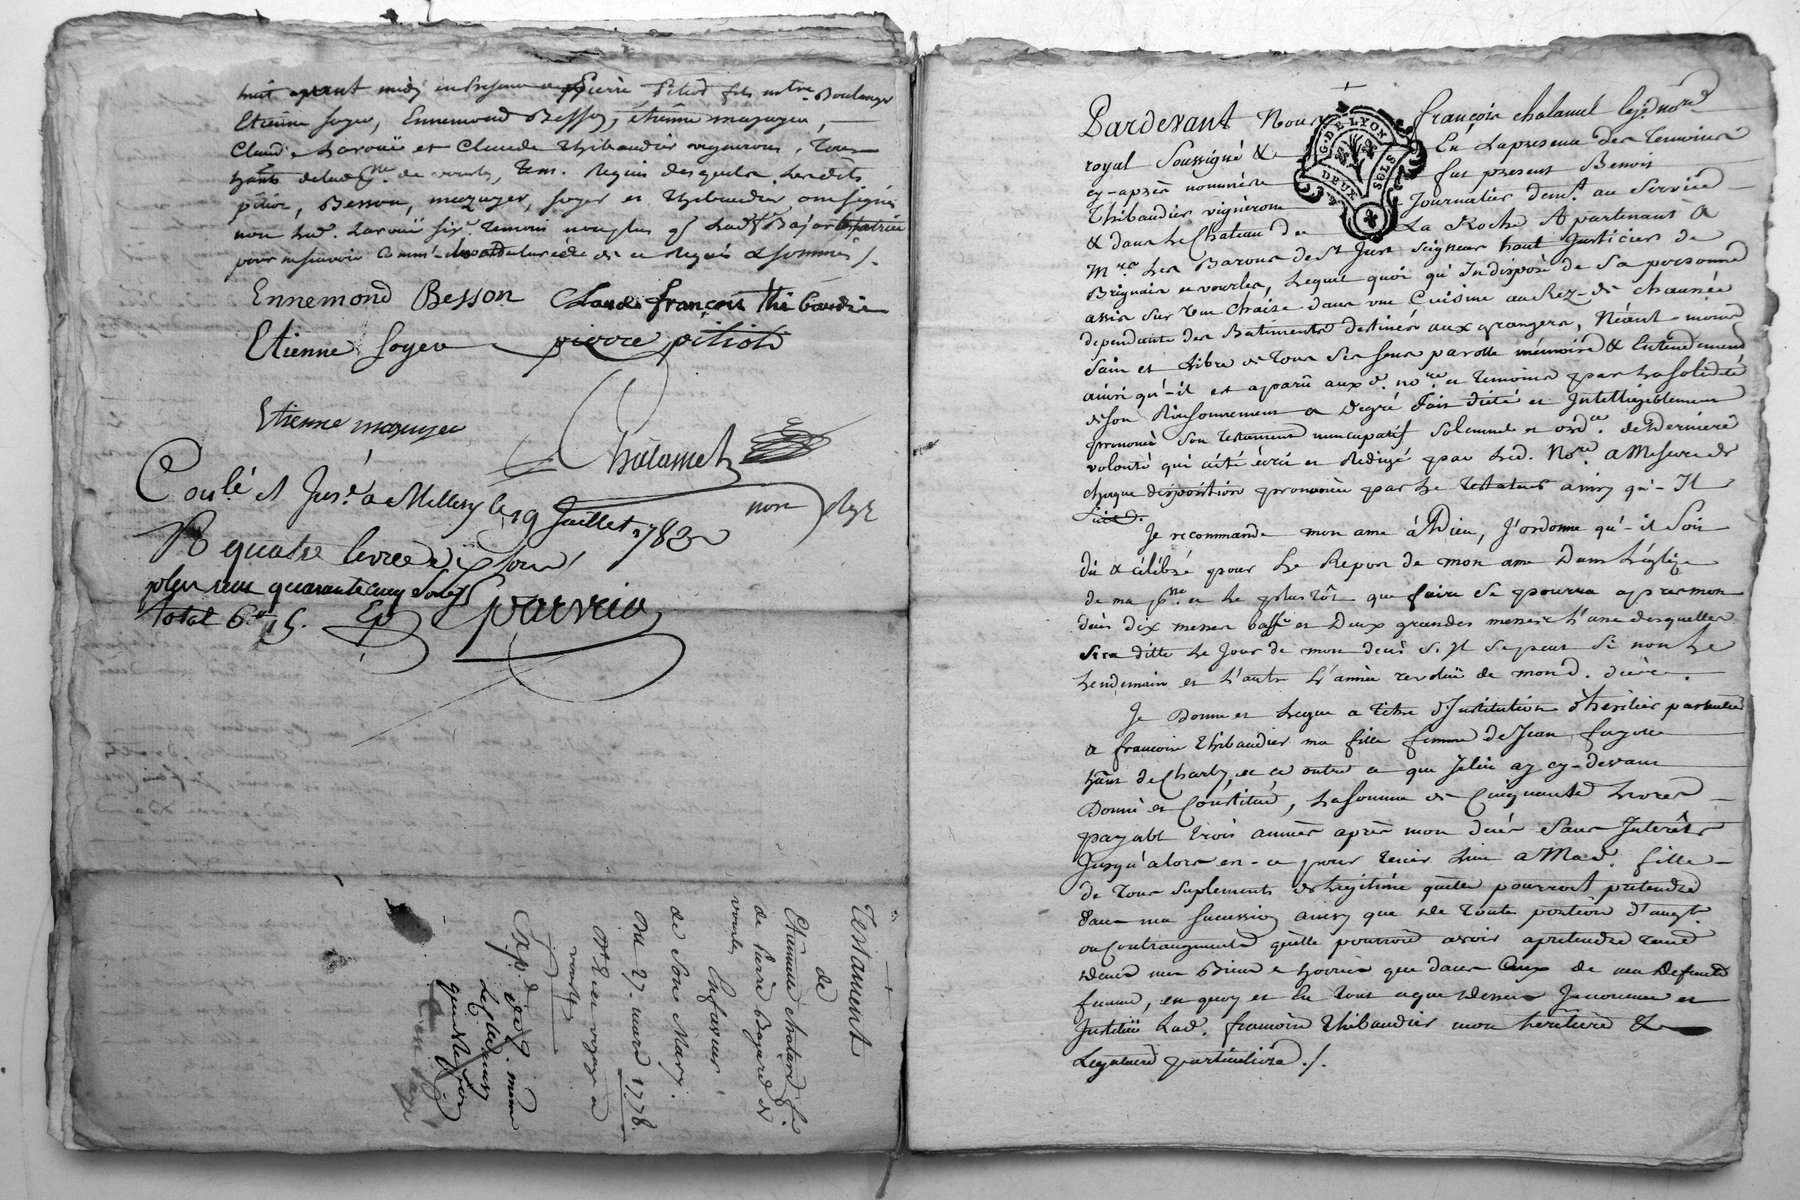 huit avant midy en presence de pierre pitiod fils notre Boulanger
Etienne soyer, Ennemond Besson, étienne mazuyer,
Claude Laroüe et Claude thibaudier vignerons, tous
hâns de lad. psse. de vourles, tem. requis desquels Lesdits
pitiot, Besson, mazuyer, soyer et thibaudier ont signé
non led. Laroüe six. temoin non plus
pour ne scavoir comme de ce requis & sommés /.
Ennemond Besson Claude françois thibaudie
Etienne Soyer pierre pitiod
Etienne mazuyer
Chalamel
non
Conlé et Jns.é a Millery le 19 Juillet 1783
R quatre livres
plus un quarante cinq sols
total 6 5.
Testament
de
de Pierre Bayard de
vourles
de Sone Mary.
Du 27 mars 1778.
vourles
Exp.
Pardevant Nous françois chalamel no.re
royal Soussigné & En La presence des temoins
cy-après nommés fut present Benoit
Thibaudier vigneron Journalier dem.t au service
& dans le Chateau de La Roche Apartenant a
Mrs. Les Barons de St. Just Seigneur haut Justicier de
Brignais et vourles, Lequel quoi qu'Indisposé de Sa personne
assis sur une chaise dans une Cuisine au Rez-de chaussée
dependante des Batiments destinés aux grangers, Néant-moins
Sain et Libre de tous ses sens parolle mémoire & Entendement
ainsi qu'-il est aparû aux d. no.re et temoins par La solidité
de son Raisonnement a degré fait dicté et Intelligiblement
prononcé son testament nuncupatif solemnel et ord.re de derniere
volonté qui a été écrit et Redigé par Led. No.re a Mesure de
chaque disposition prononcée par Le testateur ainsy qu'-Il
Suit.
Je recommande mon ame à Dieu, J'ordonne qu'-il Soit
dit & célébré pour Le Repos de mon ame Dans L'église
de ma psse. et Le plus tôt que faire Se pourra apres mon
deces dix messes basses et Deux grandes messes L'une desquelles
Sera ditte Le Jour de mon decès S.Il Se peut Si non Le
Lendemain et L'autre L'année revolüe de mond. decès.
Je Donne et Legue a titre d'Institution d'héritier particulier
a francoise Thibaudier ma fille femme de Jean fayolle
hâns de Charly, et ce outre ce que Je lui ay cy-devant
Donné et Constitué, La somme de Cinquante Livres
payable trois années après mon decés Sans Interêts
Jusqu'alors et-ce pour tenir Lieu a Mad. fille
de tous suplements de Legitime qu'elle pourroit pretendre
dans ma sucession ainsy que de toute portion d'augt.
ou Contraugment qu'elle pourroit avoir a pretendre tant
dans mes Biens & hoiries que dans Ceux de ma defunte
femme, en quoy et En tout ce que dessus Je nomme et
Institüe Lad. francoise Thibaudier mon heritiere &
Legataire particuliere ./.
G. DE LYON
DEUX SOLS